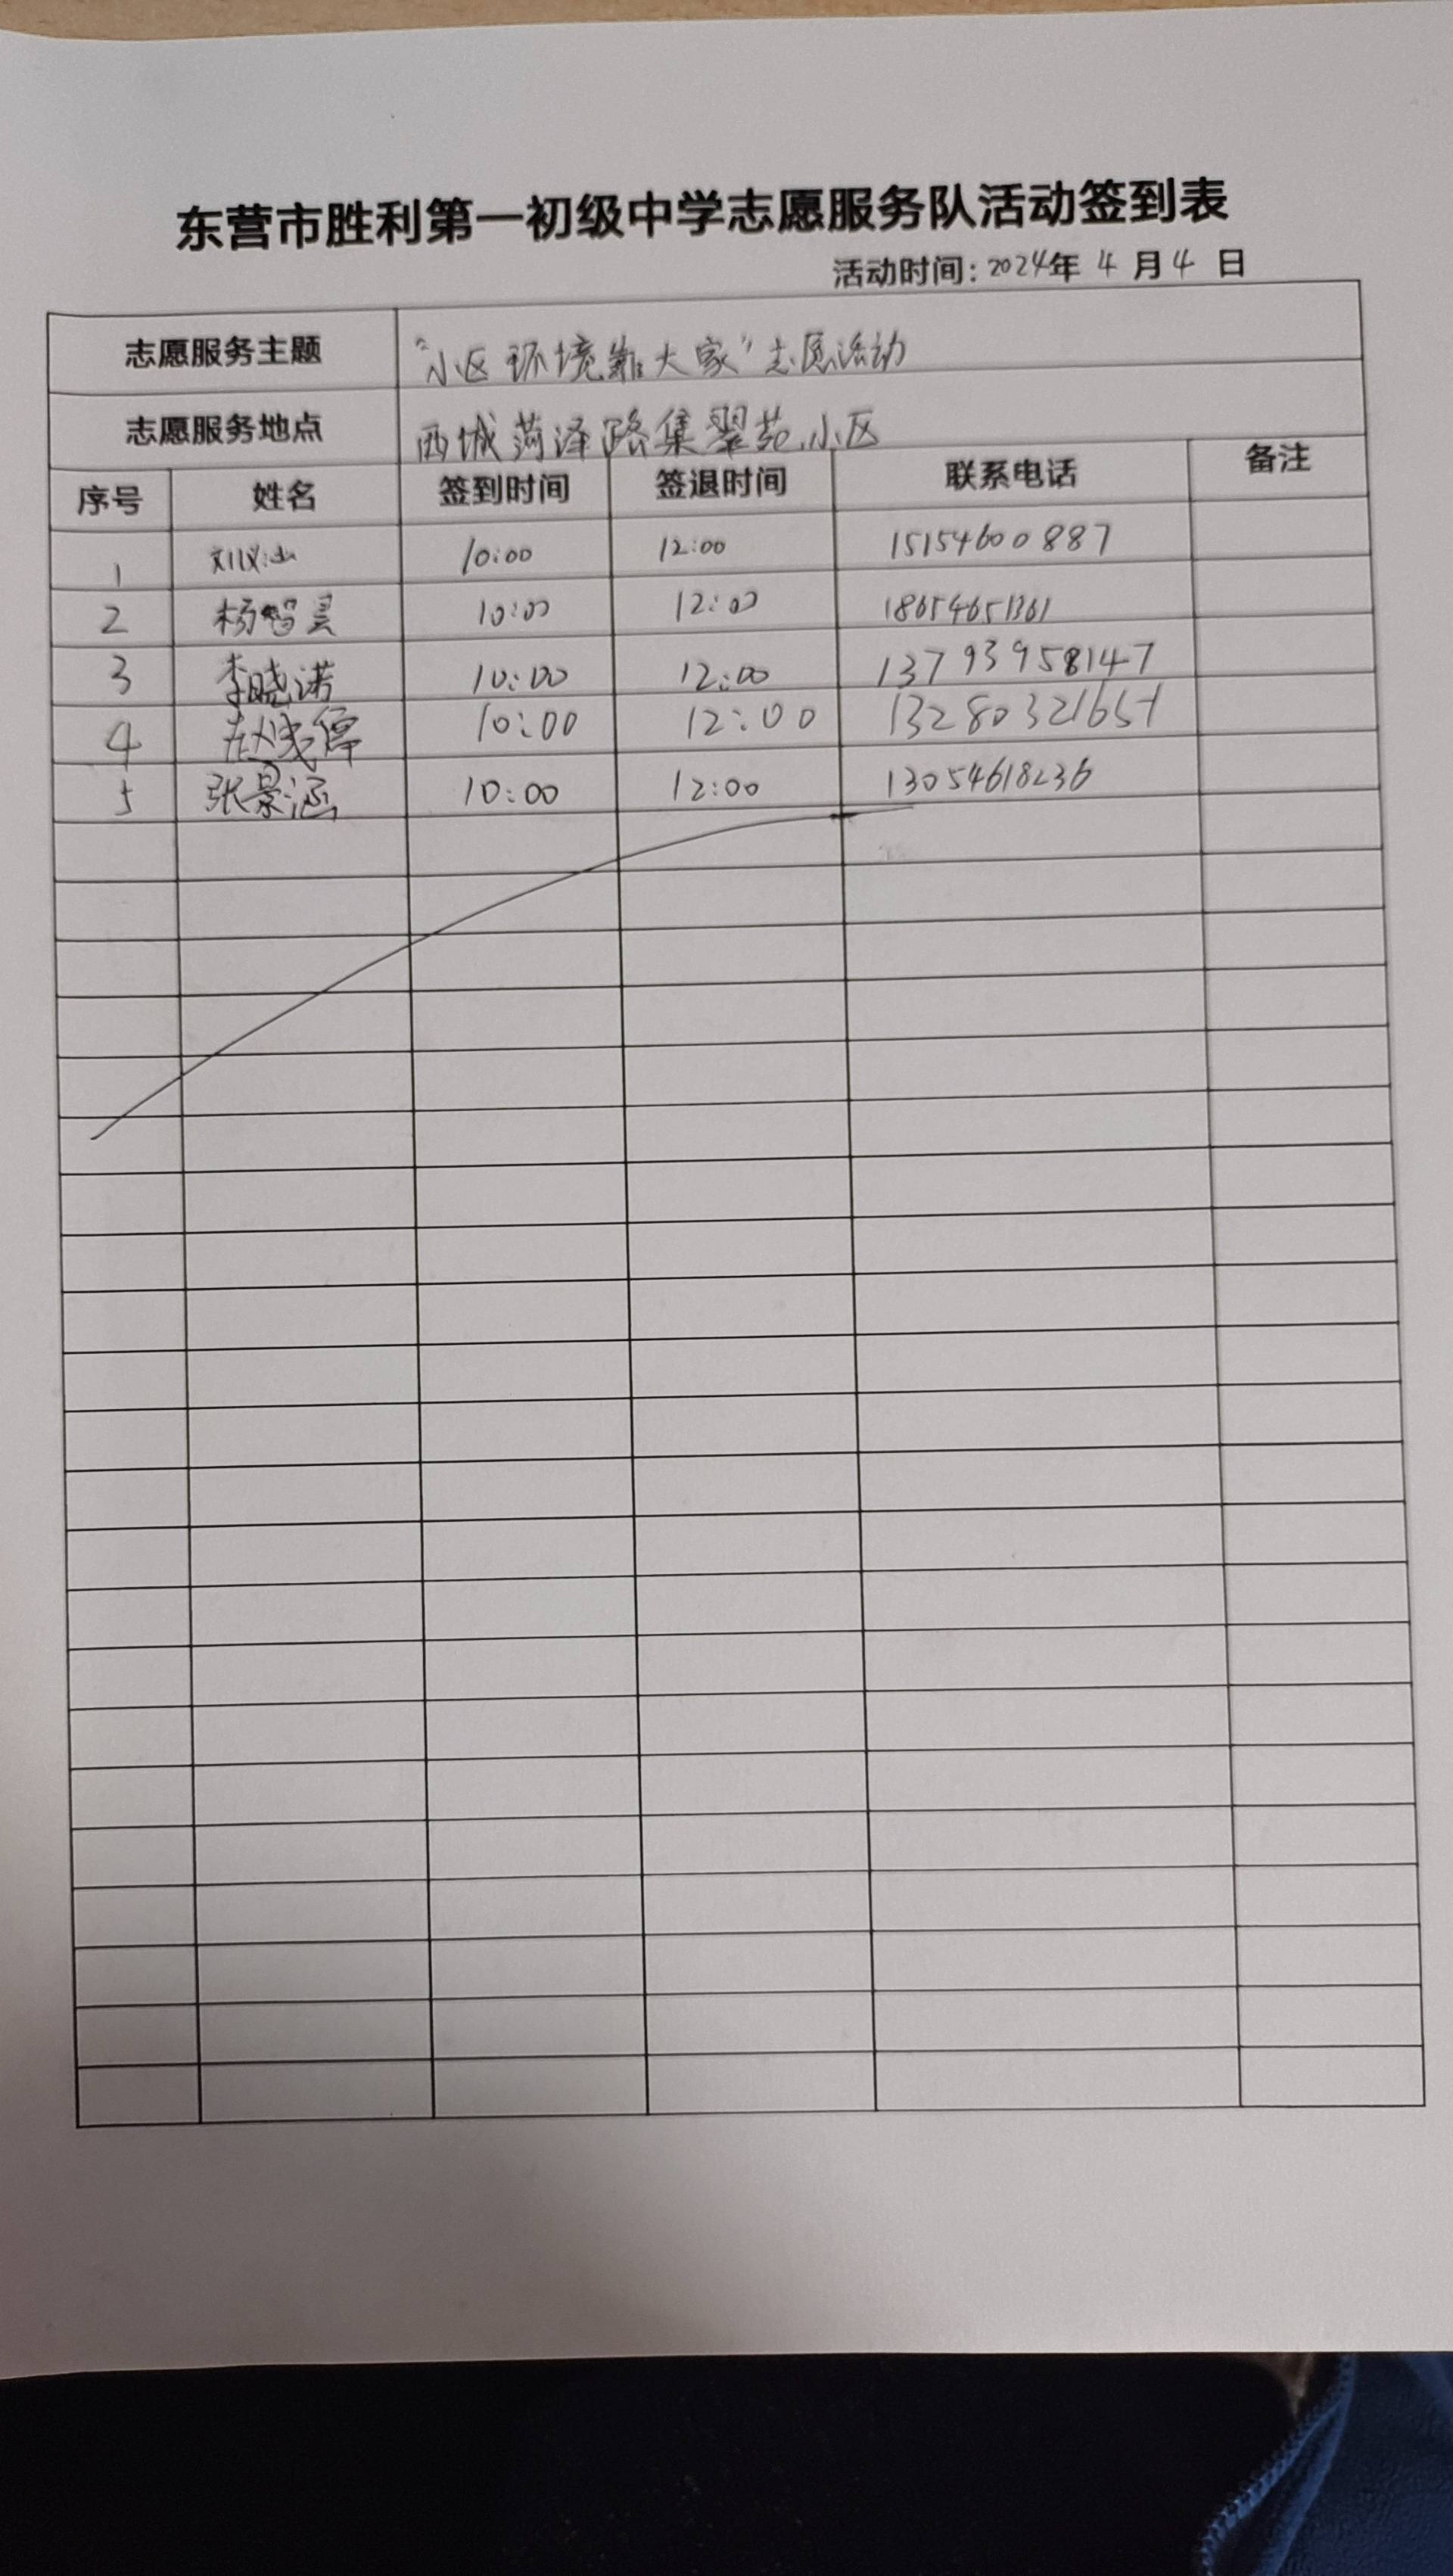 东营市胜利第一初级中学志愿服务队活动签到表
活动时间: 2024年 4 月 4 日
志愿服务主题 "小区环境靠大家"志愿活动
志愿服务地点 西城菏泽路集翠苑小区
序号 姓名 签到时间 签退时间 联系电话 备注
1 刘 10:00 12:00 15154600887
2 杨智昊 10:00 12:00 18654651361
3 李晓诺 10:00 12:00 13793958147
4 赵 10:00 12:00 13280321651
5 张景涵 10:00 12:00 13054618236